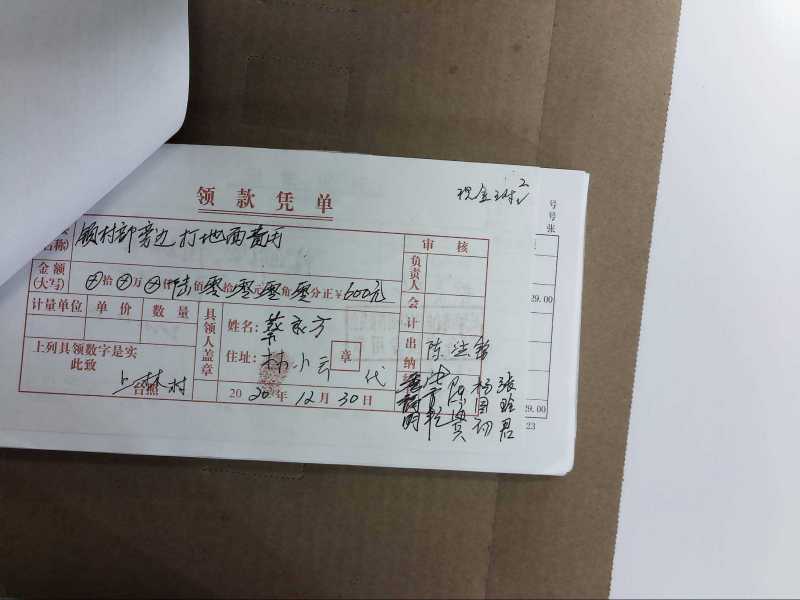 领款凭单
现金
号
号
张
领村部旁边打地面费用
名称)
审核
金额
(大写)
⊗拾⊗万⊗仟陆佰零拾零元零角零分正¥600元
负责人
29.00
计量单位 单价 数量
会计
具领人盖章
姓名:蔡永方
住址:林小云 代
章
出纳
陈
上列具领数字是实
此致
上林村
台照
2020年12月30日
杨国初
张 君
29.00
23